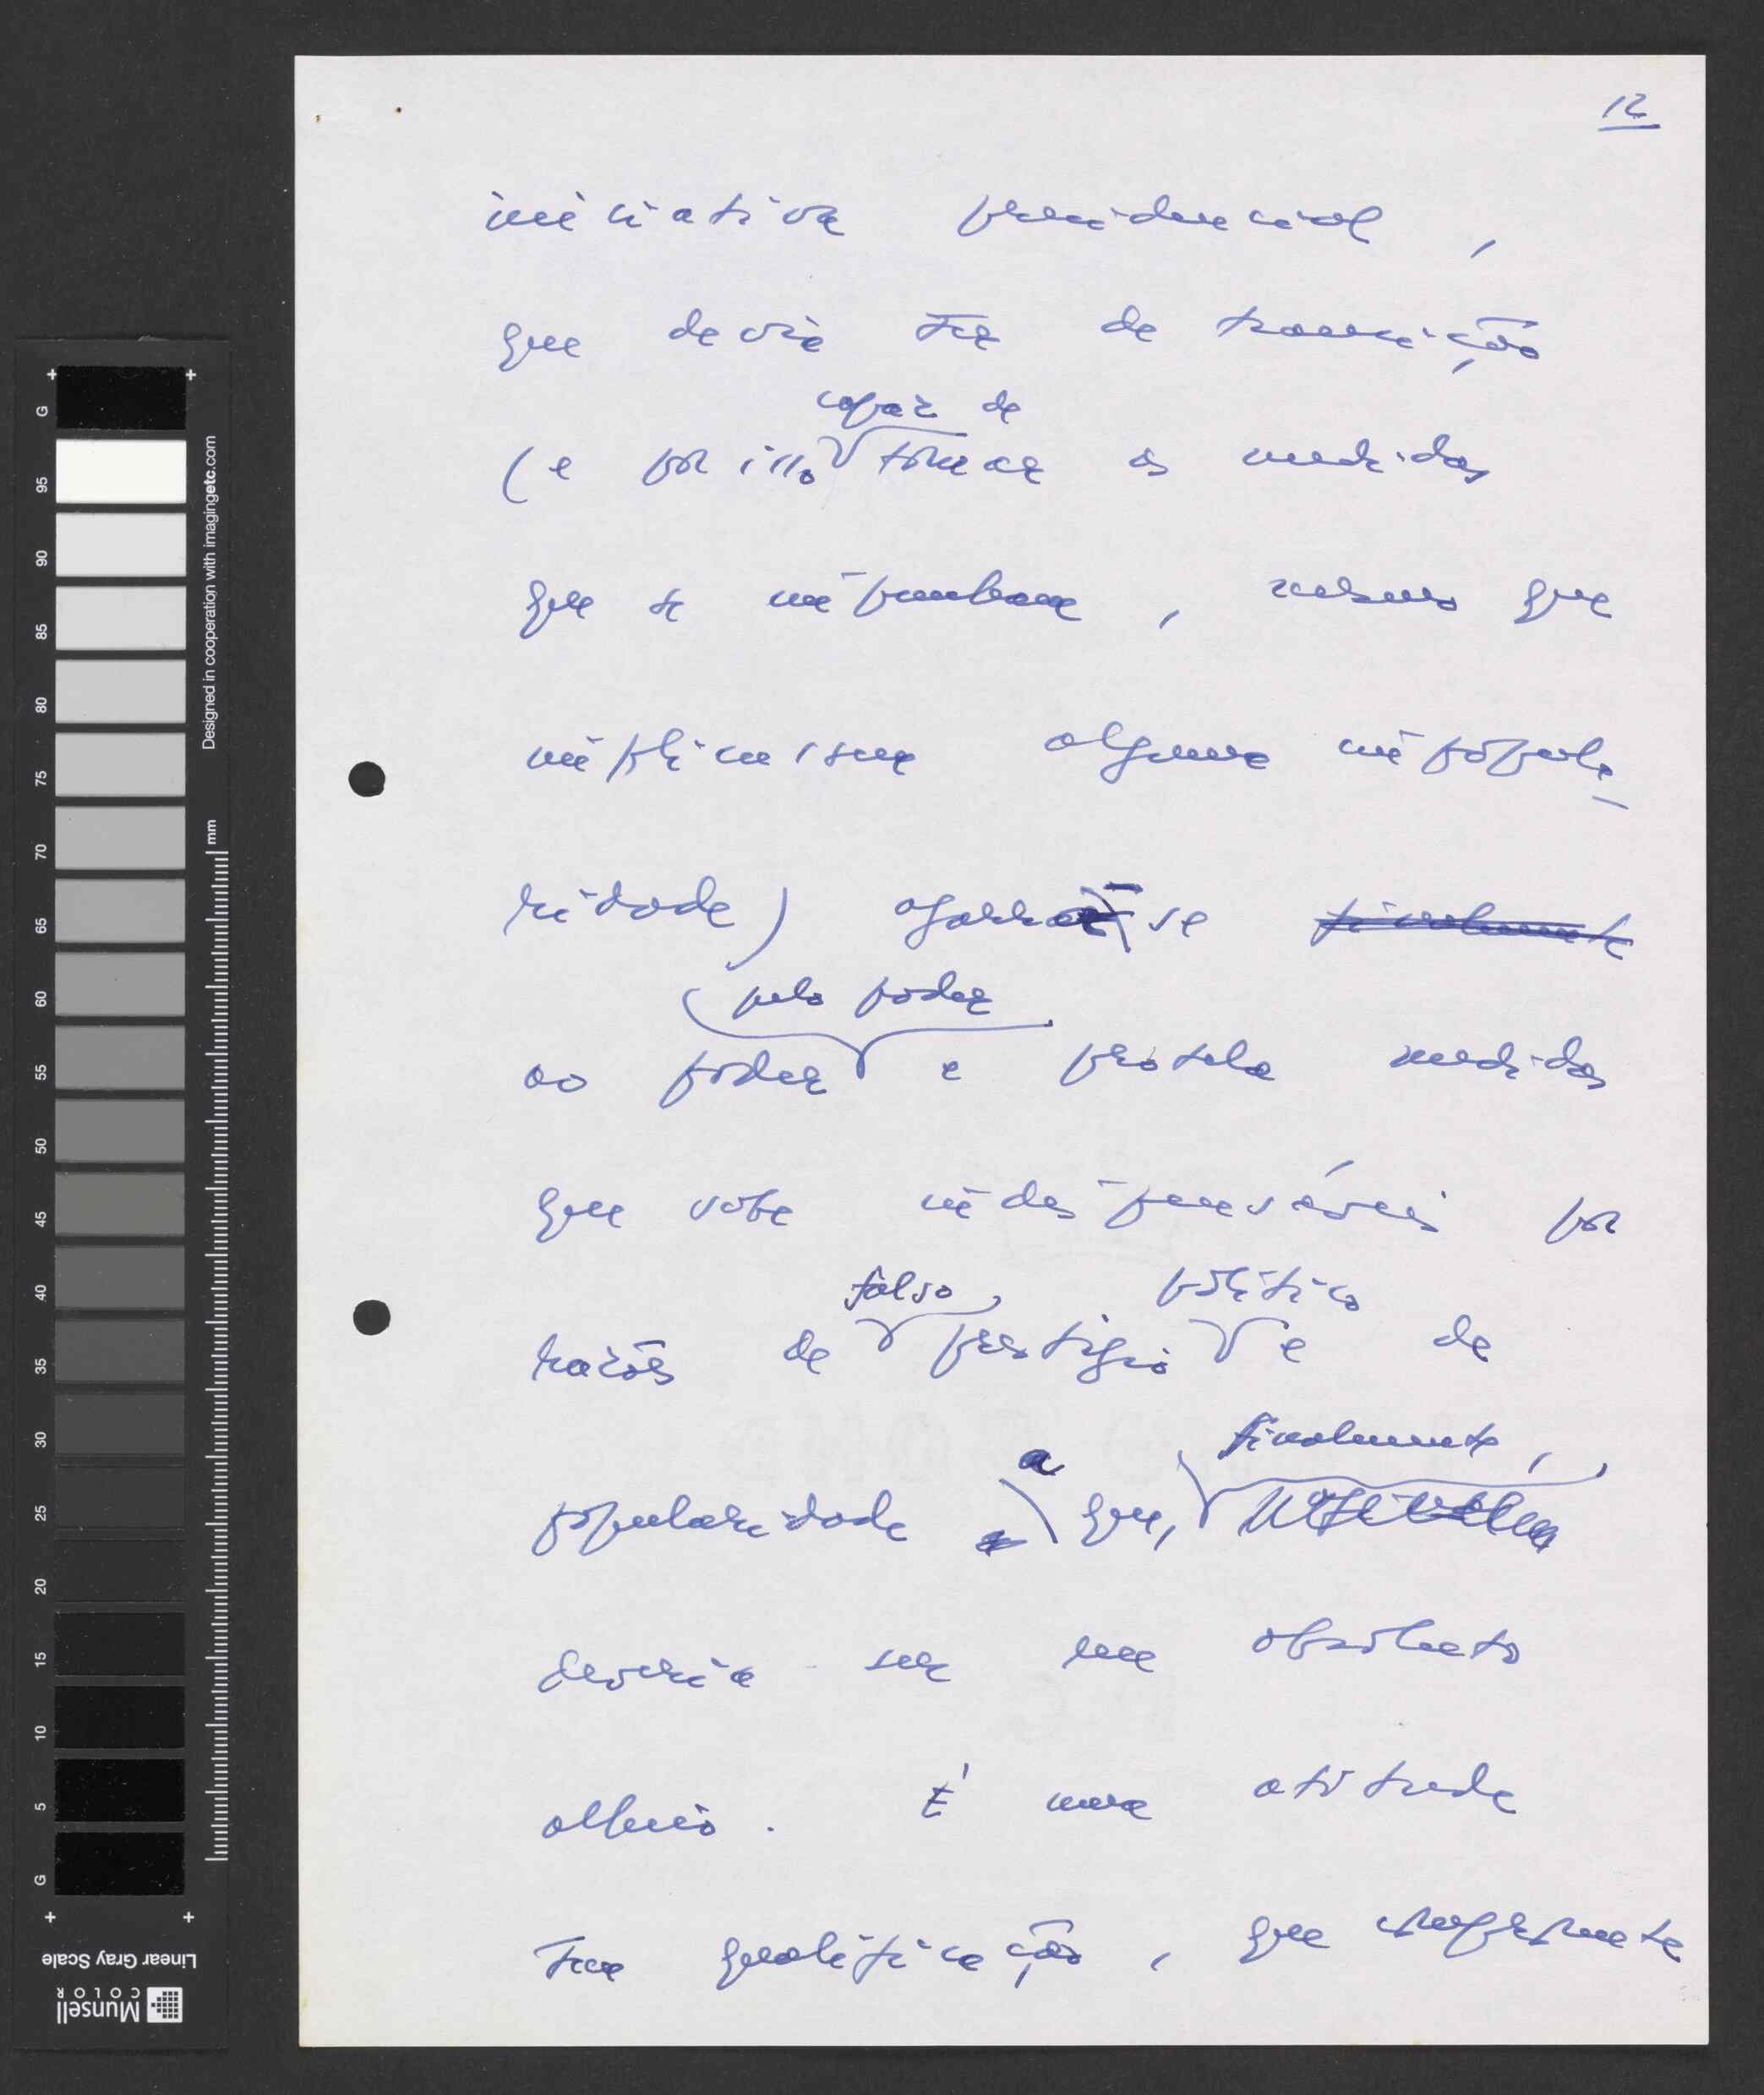 12
iniciativa presidencial,
que devia ser de transição
capaz de
(e por isso tomar as medidas
que se impunham, mesmo que
implicassem alguma impopula-
ridade) agarra-se finalmente
pelo poder
ao poder e protela medidas
que sabe indispensáveis por
falso político
razões de prestígio e de
finalmente,
popularidade a que,
deveria ser um absoluto
alheio. É uma atitude
sem qualificação, que
G 95 90 85 80 75 70 65 60 55 50 45 40 35 30 25 20 15 10 5 G
Designed in cooperation with imagingetc.com
mm
Linear Gray Scale
Munsell
COLOR